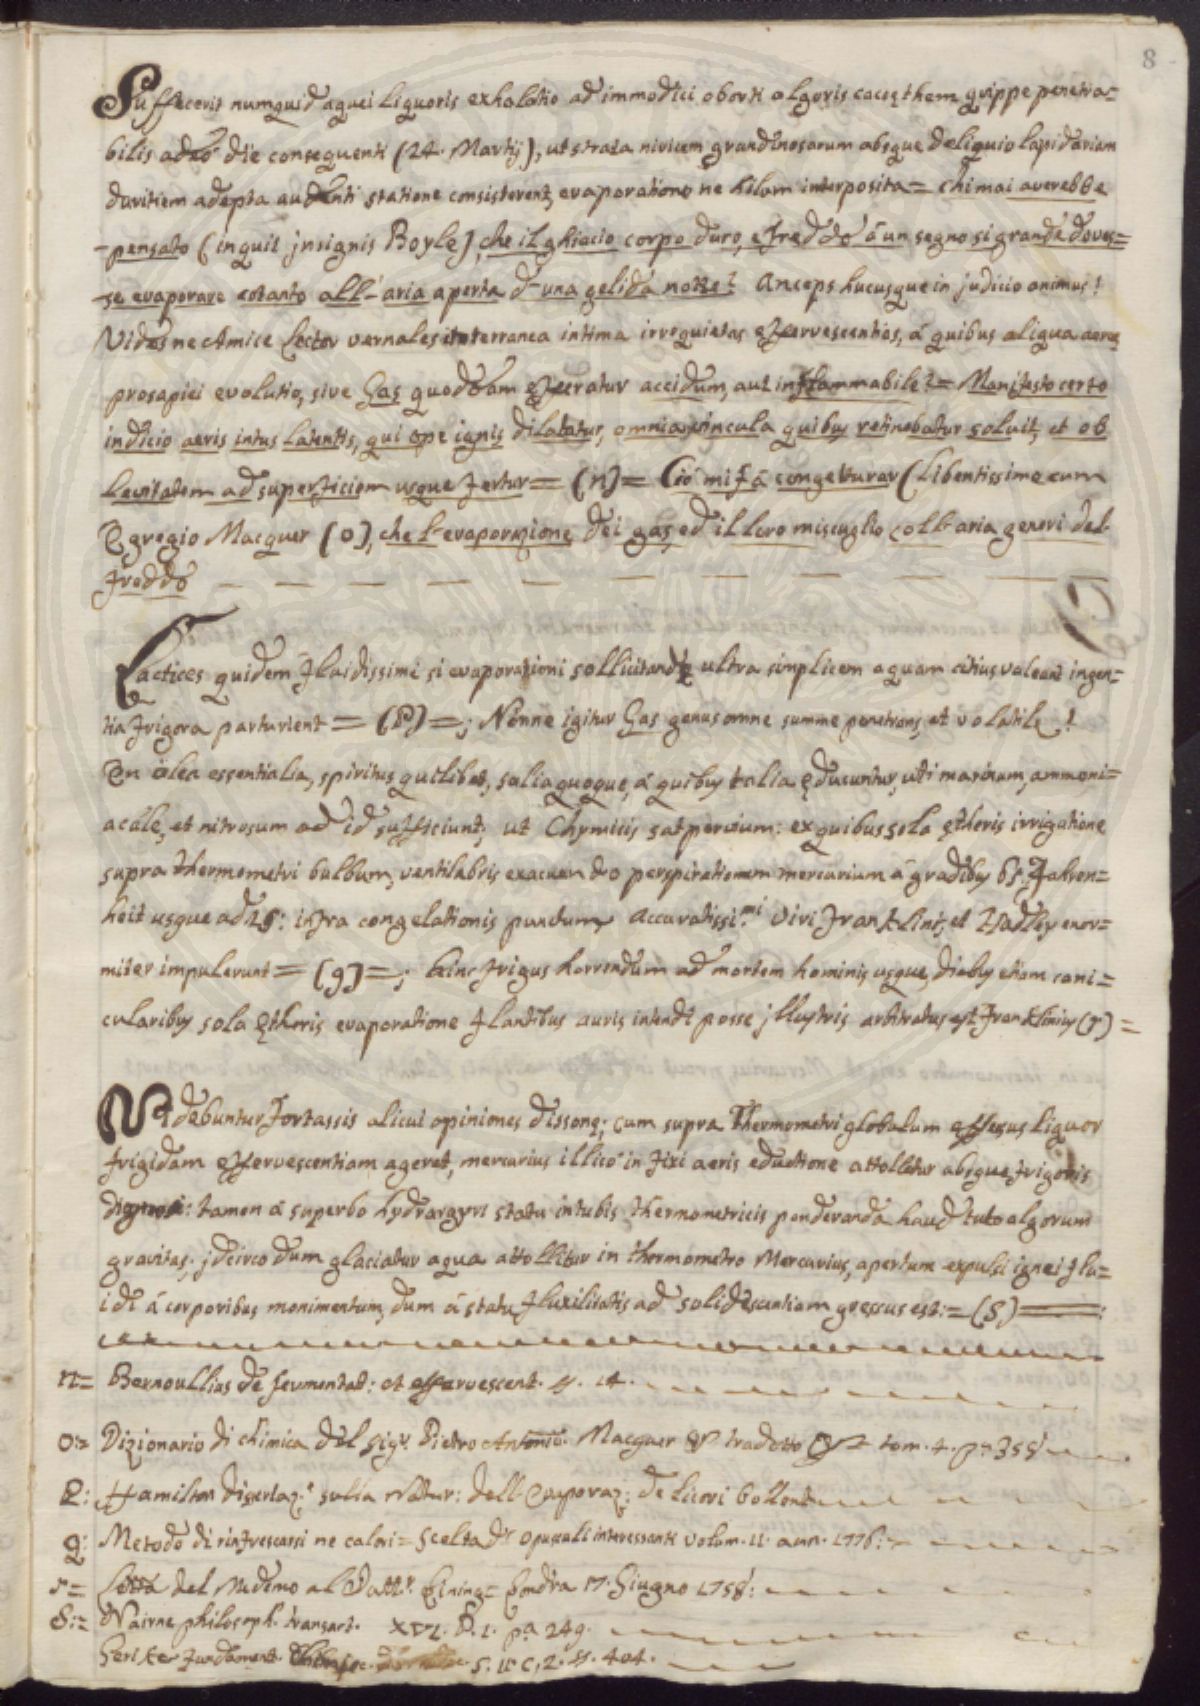 8
Suffecerit numquid aquei liquoris exhalatio ad immodici oborti algoris cacęthem quippe penetra=
bilis adeò die consequenti (24. Martij), ut strata nivium grandinosarum absque deliquio lapideam
duritiem adepta audenti statione consisterent, evaporatione ne hilum interposita = chi mai averebbe
pensato (inquit jnsignis Boyle), che il ghiacio corpo duro, e freddo à un segno si grande doves=
se evaporare cotanto all'aria aperta d'una gelida notte? Anceps hucusque in judicio animus!
Vides ne Amice Lector vernales terranea intima irrequietas effervescentias, á quibus aliqua aereę
prosapiei evolutio, sive Gas quoddam efferatur accidum, aut inflammabile? = Manifesto certo
indicio aeris intus latentis, qui ope ignis dilatatur, omnia vincula quibus retinebatur solvit, et ob
levitatem ad superficiem usque fertur = (n) = Ció mi fá congetturar (Libentissime cum
Egregio Macquer (o), che l'evaporazione dei gas, ed il loro miscuglio coll'aria generi del
freddo
Lactices quidem fluidissimi si evaporationi sollicitandę ultra simplicem aquam citius valeant ingen=
tia frigora parturient = (P) =; Nonne igitur Gas genus omne summe penetrans, et volatile!
En olea essentialia, spiritus quilibet, salia quoque, á quibus talia educuntur, uti marinum, ammoni=
acale, et nitrosum ad id sufficiunt; ut Chymicis sat pervium: ex quibus sola ętheris irrigatione
supra thermometri bulbum, ventilabris exacuendo perspirationem mercurium á gradibus 65. Fahren=
heit usque ad 25: infra congelationis punctum Accuratissi.mi Viri Franklini, et Hadley enor=
miter impulerunt = (q) =; hinc frigus horrendum ad mortem hominis usque, diebus etiam cani=
cularibus sola ętheris evaporatione flantibus auris intendi posse jllustris arbitratus est Franklinius (r) =
Videbuntur fortassis alicui opiniones dissonę; cum supra Thermometri globulum effusus liquor
frigidam effervescentiam ageret, mercurius illicò in fixi aeris eductione attolletur absque frigoris
: tamen á superbo hydrargyri statu in tubis thermometricis ponderanda haud tuto algorum
gravitas; jdcirco dum glaciatur aqua attollitur in thermometro Mercurius, apertum expulsi ignei flu=
idi á corporibus monimentum, dum á statu fluxilitatis ad solidescentiam gressus est: = (S)
n= Bernoullius de fermentat: et effervescent. §. 14.
o:= Dizionario di chimica del Sigr. Pietro Antonio Macquer tradotto tom. 4. p: 355
P: Hamilton disertaz.e sulla natur: dell'Evaporaz: de licori bollent.
q: Metodo di rinfrescarsi ne calori = Scelta d'opuscoli interessanti volum. 11. ann. 1776:
r= Lettera del Medemo al Dottr. Lining = Londra 17. Giugno 1758:
S:= Nairne philosoph. transact. XVI. P. 1. pa 249.
Gerike fundament. S. 11. C, 2. §. 404.